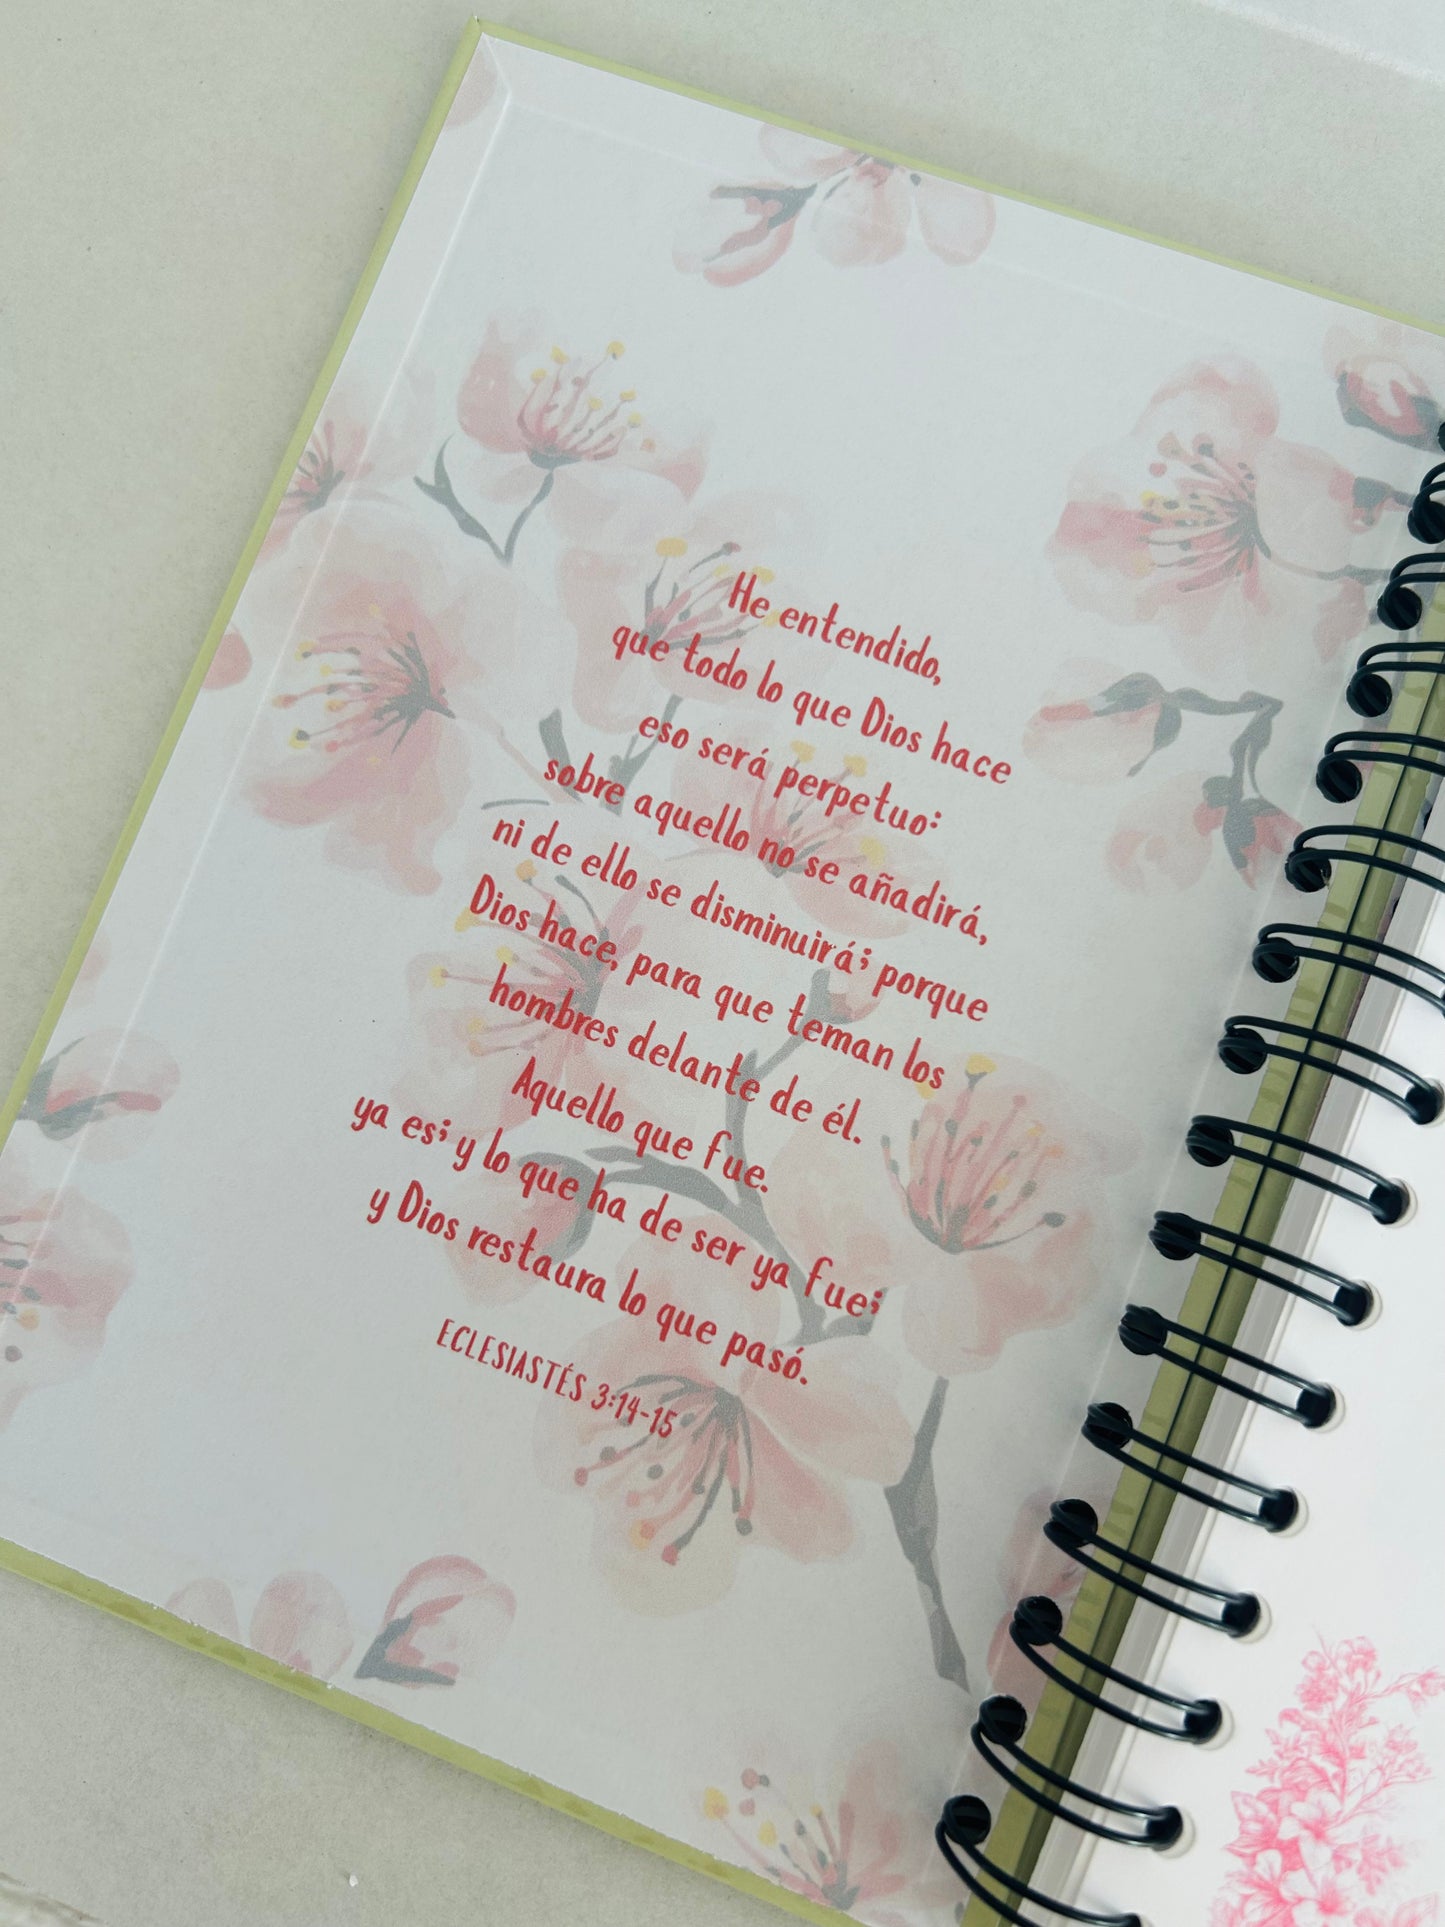 He entendido,
que todo lo que Dios hace
eso será perpetuo:
sobre aquello no se añadirá,
ni de ello se disminuirá; porque
Dios hace, para que teman los
hombres delante de él.
Aquello que fue.
ya es; y lo que ha de ser ya fue;
y Dios restaura lo que pasó.
ECLESIASTÉS 3:14-15